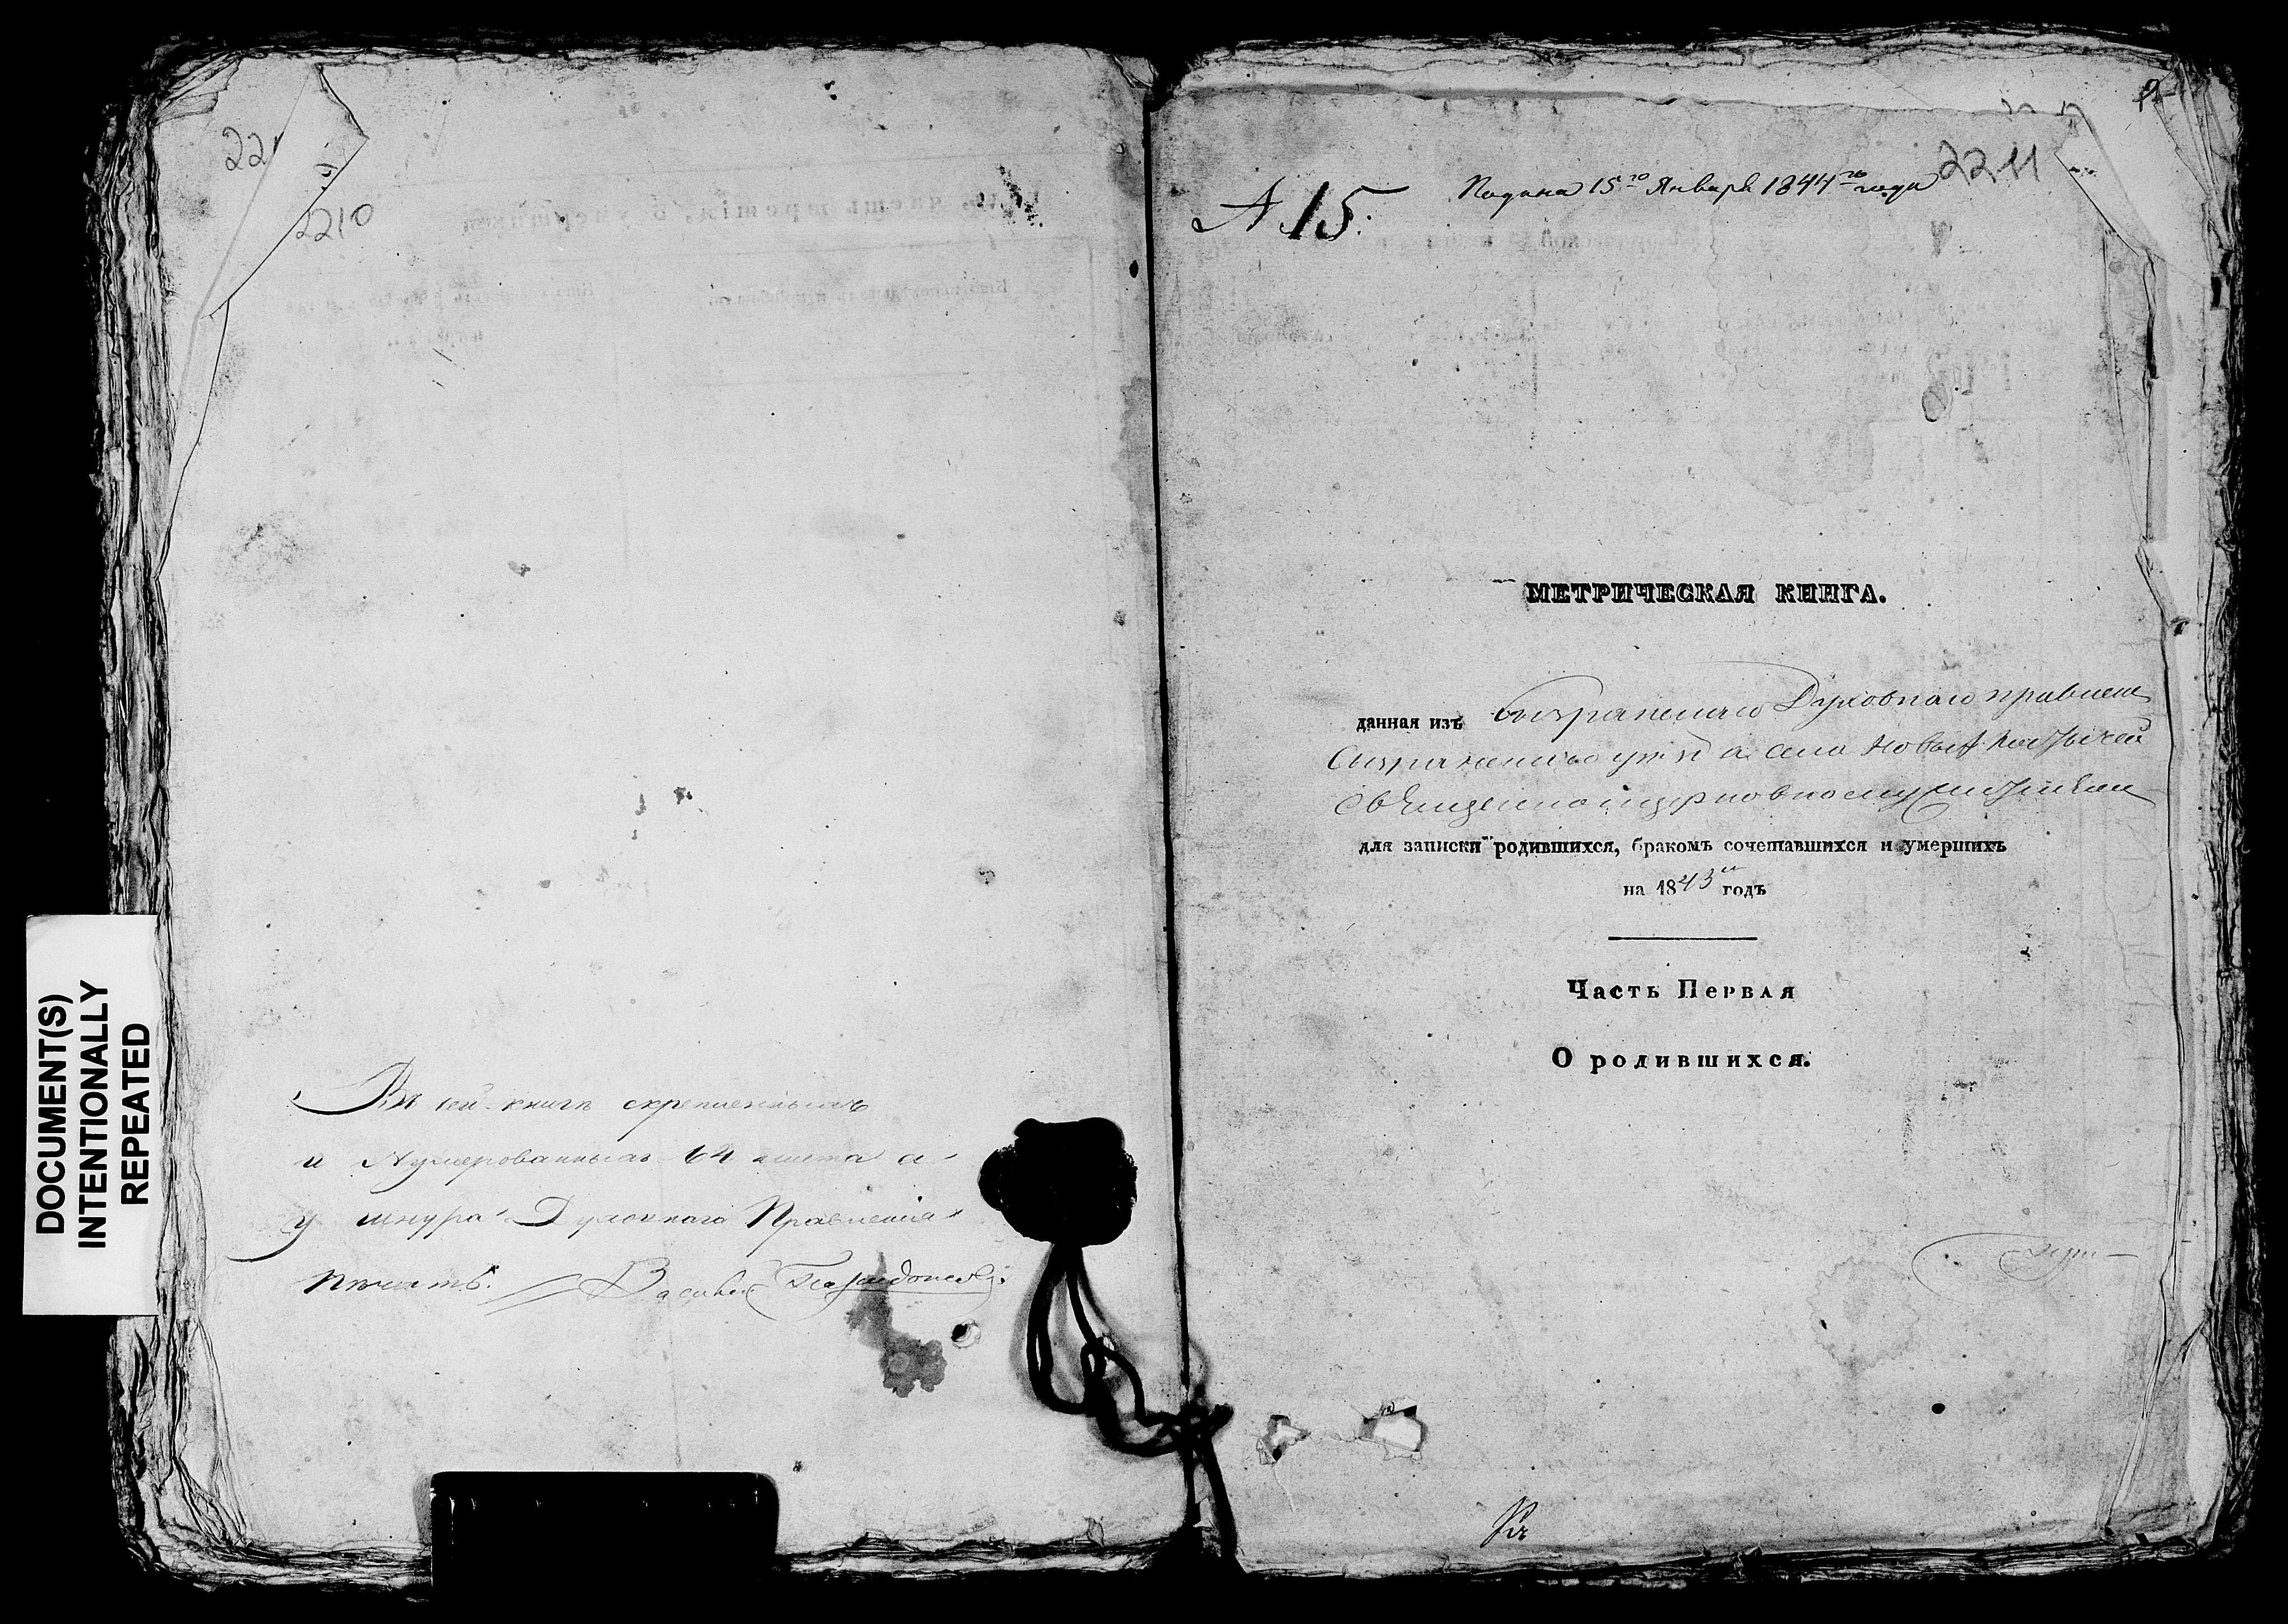 DOCUMENT(S)
INTENTIONALLY
REPEATED
2210
Въ сей книгѣ скрепленныхъ
и Нумерованныхъ 64 листа а
у шнура Духовнаго Правленія
печать. Василій
2211
А 15.
Подана 15го Января 1844го года
МЕТРИЧЕСКАЯ КНИГА.
данная изъ Сызранскаго Духовнаго правленія
Сызранскаго уѣзда села Новыхъ Костычей
Священноцерковнослужителям
для записки родившихся, бракомъ сочетавшихся и умершихъ
на 1843й годъ
Часть Первая
О родившихся.